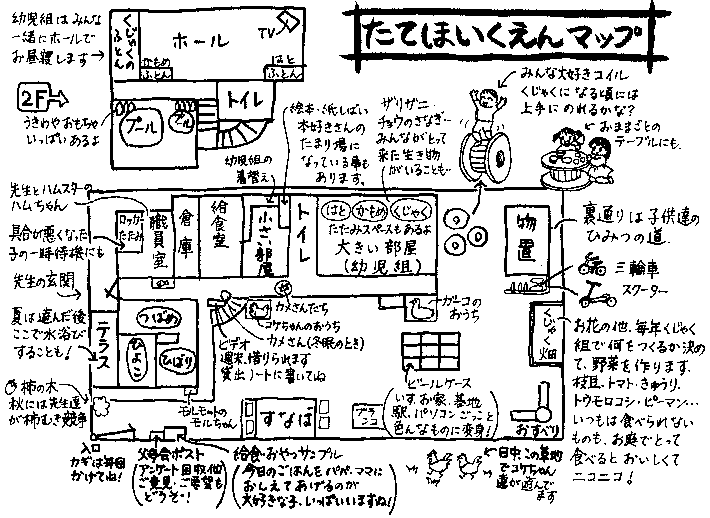 たてほいくえんマップ
幼児組はみんな
一緒にホールで
お昼寝します
くじゃくの
ふとん
ホール
TV
かもめ
ふとん
はと
ふとん
2F
トイレ
プール
プール
うきわやおもちゃ
いっぱいあるよ
絵本・紙しばい
本好きさんの
たまり場に
なっている事も
あります。
幼児組の
着替え
ザリガニ
チョウのさなぎ…
みんながとって
来た生き物
がいることも…
みんな大好きコイル
くじゃくになる頃には
上手にのれるかな?
おままごとの
テーブルにも。
先生とハムスターの
ハムちゃん
具合が悪くなった
子の一時待機にも
先生の玄関
夏は遊んだ後
ここで水浴び
することも!
柿の木
秋には先生達
が柿むき競争
ロッカー
たたみ
職員室
倉庫
給食室
小さい部屋
トイレ
はと
かもめ
くじゃく
たたみスペースもあるよ
大きい部屋
(幼児組)
物置
裏通りは子供達の
ひみつの道。
三輪車
スクーター
テラス
つばめ
ひよこ
ひばり
カメさんたち
コケちゃんのおうち
カメさん(冬眠のとき)
ビデオ
週末、借りられます
貸出ノートに書いてね
ガーコの
おうち
くじゃく畑
お花の他、毎年くじゃく
組で何をつくるか決め
て、野菜を作ります。
枝豆・トマト・きゅうり・
トウモロコシ・ピーマン…
いつもは食べられない
ものも、お庭でとって
食べるとおいしくて
ニコニコ!
ビールケース
いす、お家、基地
駅、パソコンごっこと
色んなものに変身!
モルモットの
モルちゃん
すなば
ブランコ
おすべり
入口
カギは毎回
かけてね!
父母会ポスト
アンケート回収他
ご意見・ご要望も
どうぞ!
給食・おやつサンプル
今日のごはんをパパ、ママに
おしえてあげるのが
大好きな子、いっぱいいますね!
日中この基地
でコケちゃん
達が遊んで
ます